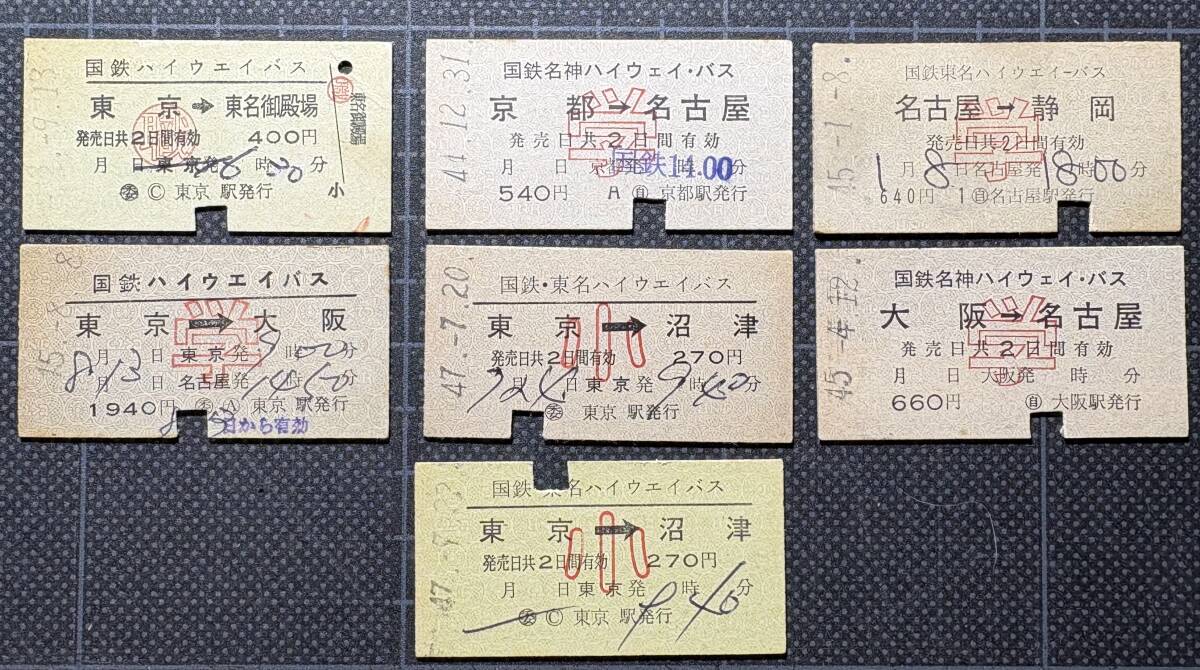 国鉄ハイウエイバス
東京➔東名御殿場
発売日共2日間有効 400円
月 日 東京発 時 20 分
㋵ Ⓒ 東京 駅発行
小
44.12.31.
国鉄名神ハイウェイ・バス
京都→名古屋
学
発売日共2日間有効
月 日 京都発 時 分
国鉄14.00
540円 A ㉂ 京都駅発行
45.-1.-8.
国鉄東名ハイウエイーバス
名古屋→静岡
学
発売日共2日間有効
1月8日名古屋発18時00分
640円 1 ㉂名古屋駅発行
45.-8.-8
国鉄ハイウエイバス
東京→大阪
学
8月13日 東京発 9時00分
月 日 名古屋発 14時50分
1940円 Ⓐ 東京 駅発行
日から有効
47.-7.20.
国鉄・東名ハイウエイバス
東京→沼津
小
発売日共2日間有効 270円
7月24日 東京発 9時40分
東京 駅発行
45.-4.12.
国鉄名神ハイウェイ・バス
大阪→名古屋
学
発売日共2日間有効
月 日 大阪発 時 分
660円 ㉂ 大阪駅発行
国鉄・東名ハイウエイバス
東京→沼津
小
発売日共2日間有効 270円
月 日 東京発 9時40分
Ⓒ 東京 駅発行